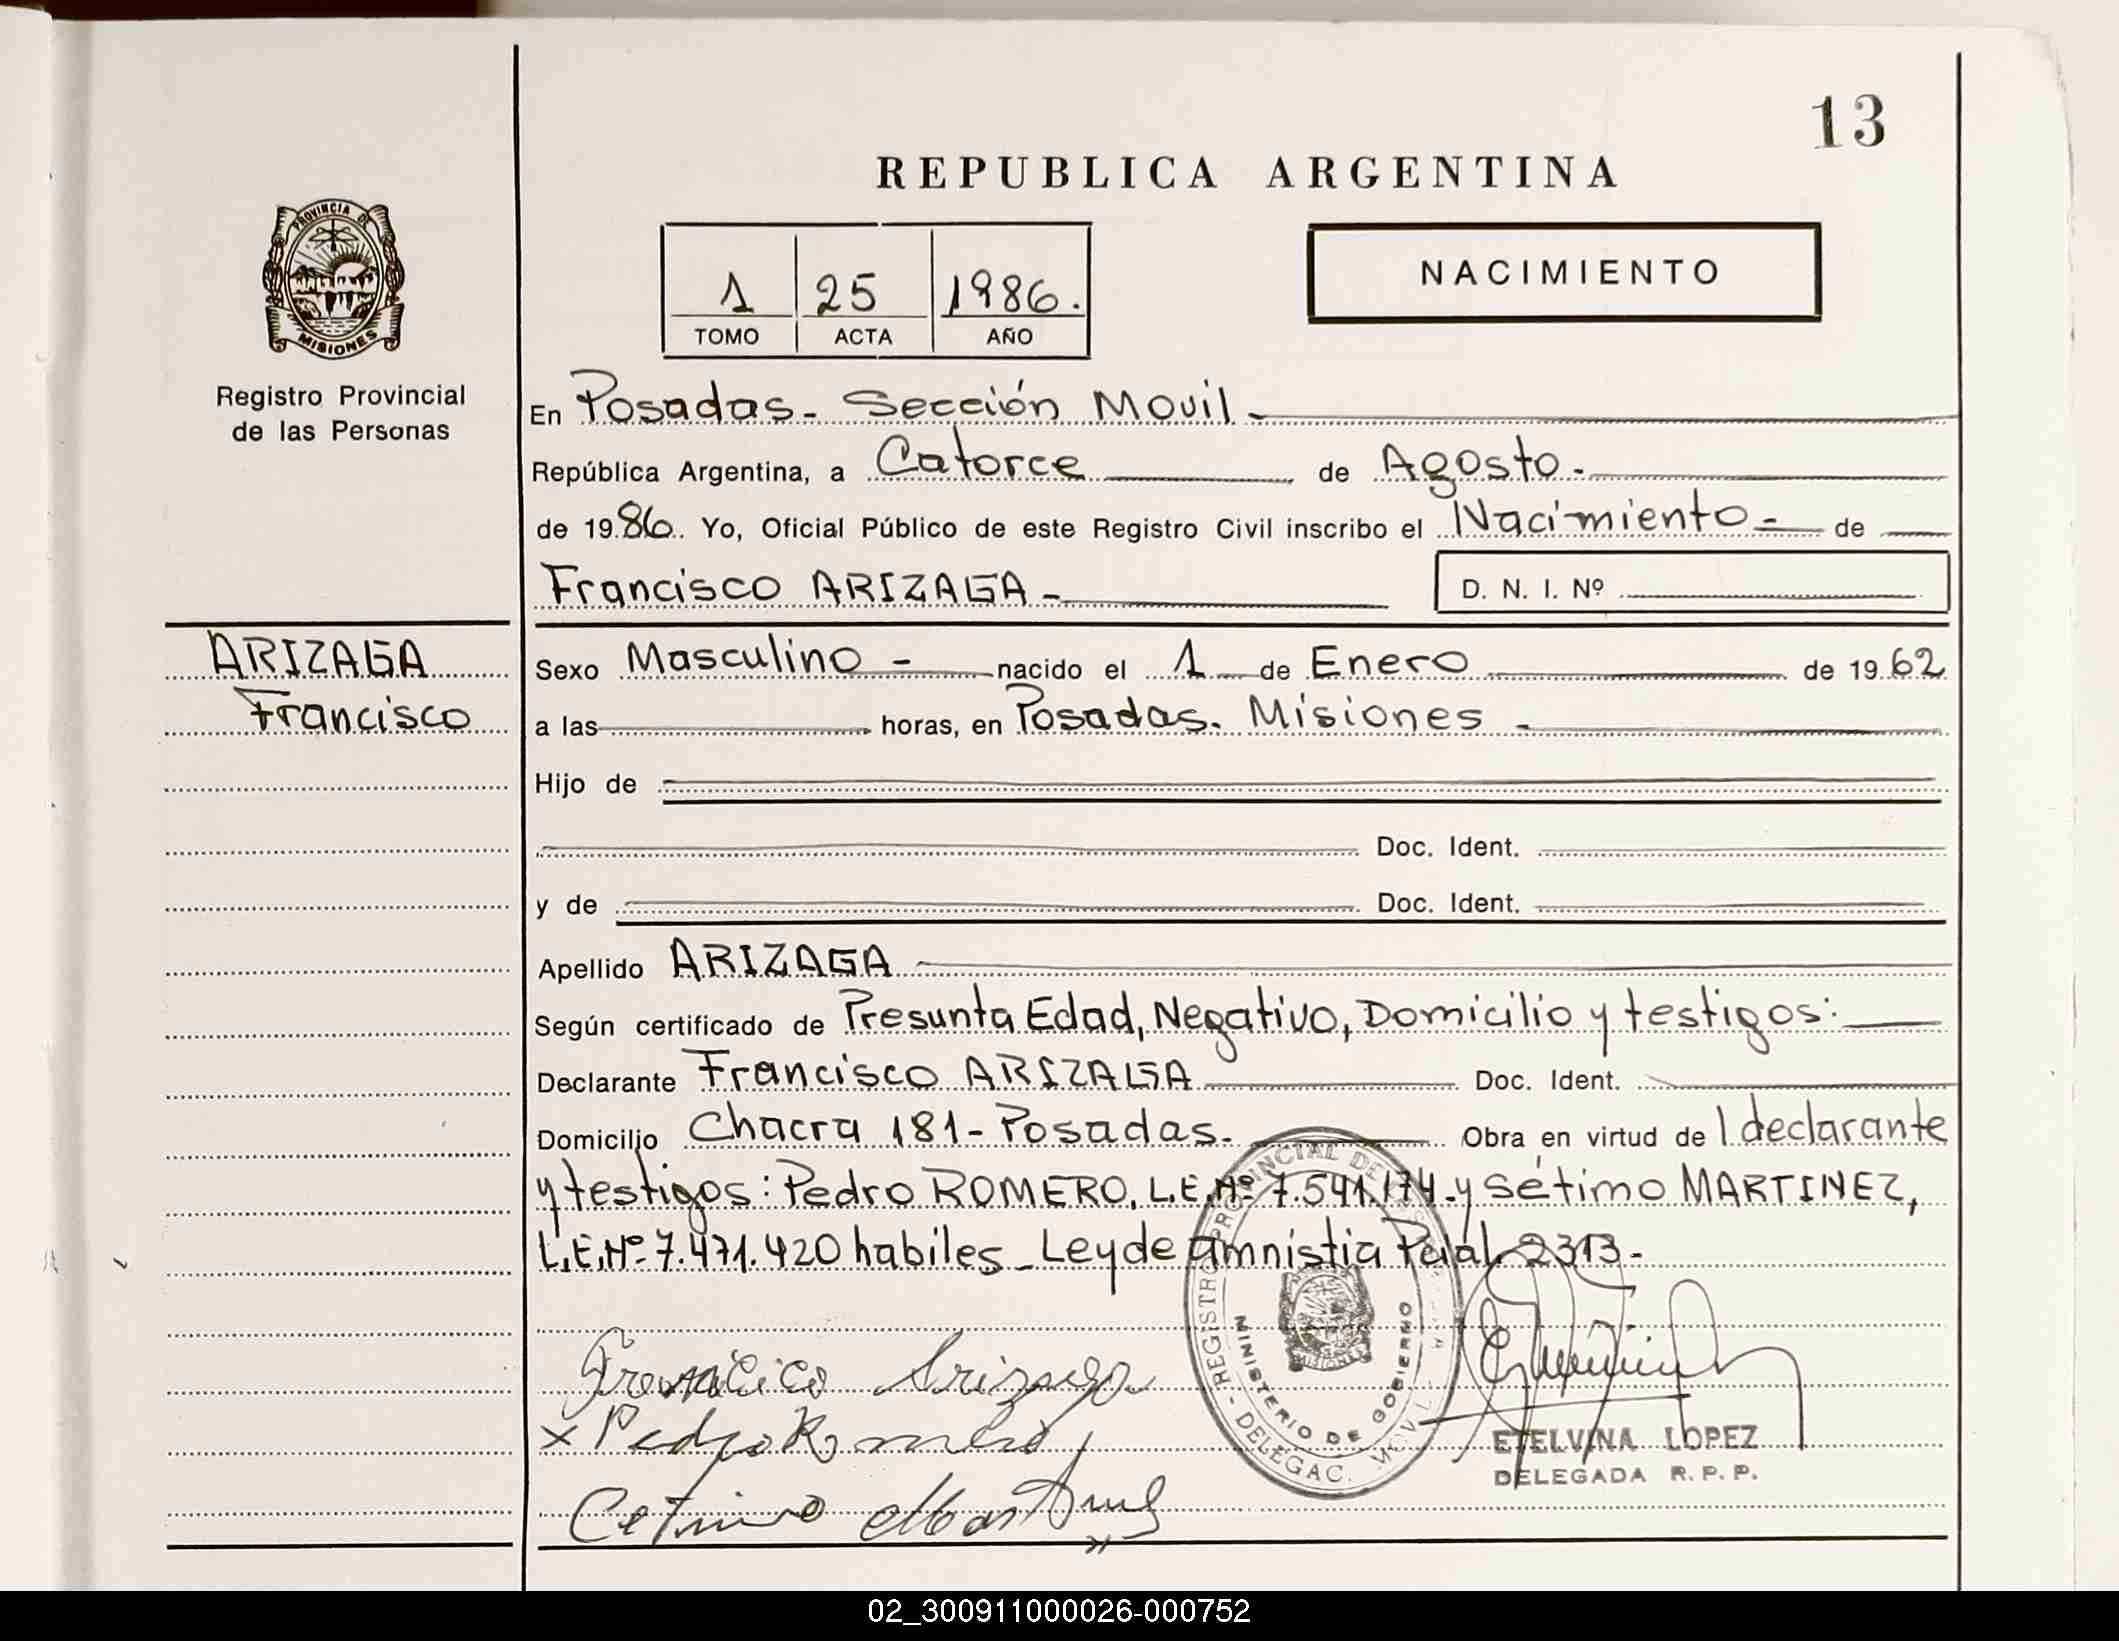 13
REPUBLICA ARGENTINA
PROVINCIA DE
MISIONES
Registro Provincial
de las Personas
1 25 1986.
TOMO ACTA AÑO
NACIMIENTO
En Posadas- Sección Movil-
República Argentina, a Catorce de Agosto-
de 1986 Yo, Oficial Público de este Registro Civil inscribo el Nacimiento- de
Francisco ARIZAGA- D. N. I. Nº
ARIZAGA
Francisco
Sexo Masculino - nacido el 1 de Enero de 1962
a las horas, en Posadas. Misiones -
Hijo de
Doc. Ident.
y de Doc. Ident.
Apellido ARIZAGA
Según certificado de Presunta Edad, Negativo, Domicilio y testigos:
Declarante Francisco ARIZAGA Doc. Ident.
Domicilio Chacra 181-Posadas. Obra en virtud de l declarante
y testigos: Pedro ROMERO, L.E.Nº 7.541.174.y Sétimo MARTINEZ,
L.E.Nº 7.471.420 habiles_Ley de amnistia 2313-
REGISTRO PROVINCIAL DE
MINISTERIO DE GOBIERNO
MISIONES
- DELEGAC. MOVIL -
Francico Arizaga
x Pedro Romero
Cetimo Martines
ETELVINA LOPEZ
DELEGADA R. P. P.
02_300911000026-000752